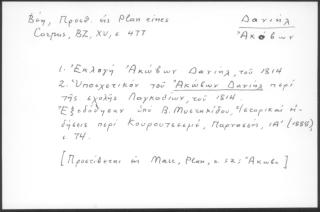 Βέη, Προσθ. εις Plan είπες
Corpus, BZ, XV, σ 477
Δανιήλ
Ἀκόβων
1. Ἐκλογή Ἀκώβων Δανιήλ, τοῦ 1814
2. Ὑποσχετικόν τοῦ Ἀκώβων Δανιήλ περί
τῆς σχολῆς Λαγκαδίων, τοῦ 1814.
Ἐξεδόθησαν ὑπό Β. Μυστακίδου, Ἱστορικαί εἰ-
δήσεις περί Κουρουτσεσμέ, Παρνασσός, ΙΑ' (1888),
σ 74.
[Προστίθεται εἰς Marc, Plan, σ 52; Ἀκωβα]